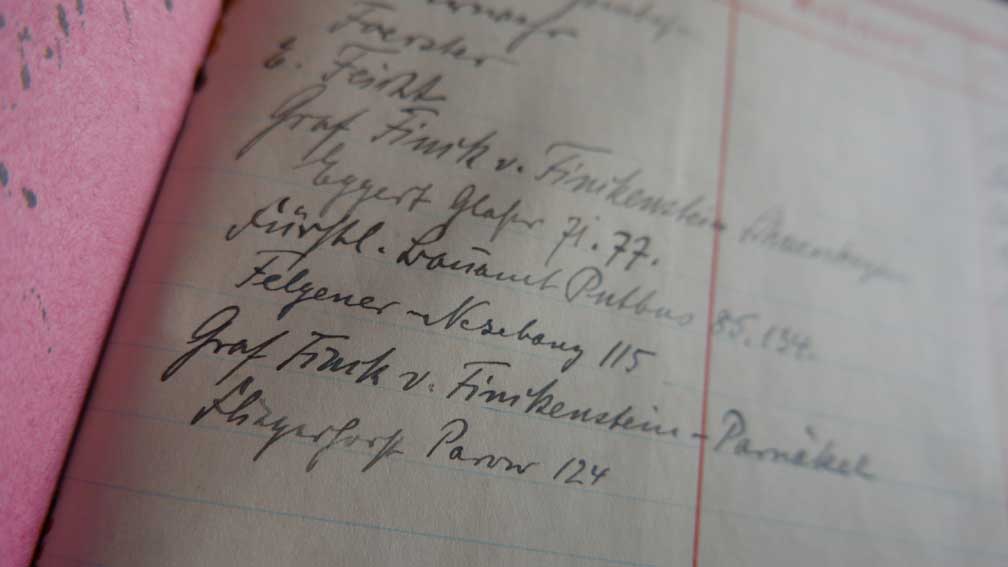 Foerster
E. Feicht
Graf Finck v. Finckenstein
Eggert Glaser 71. 77.
Fürstl. Bauamt Putbus 85. 134.
Felgener - Nesebanz 115
Graf Finck v. Finckenstein - Parnäkel
Fliegerhorst Parow 124